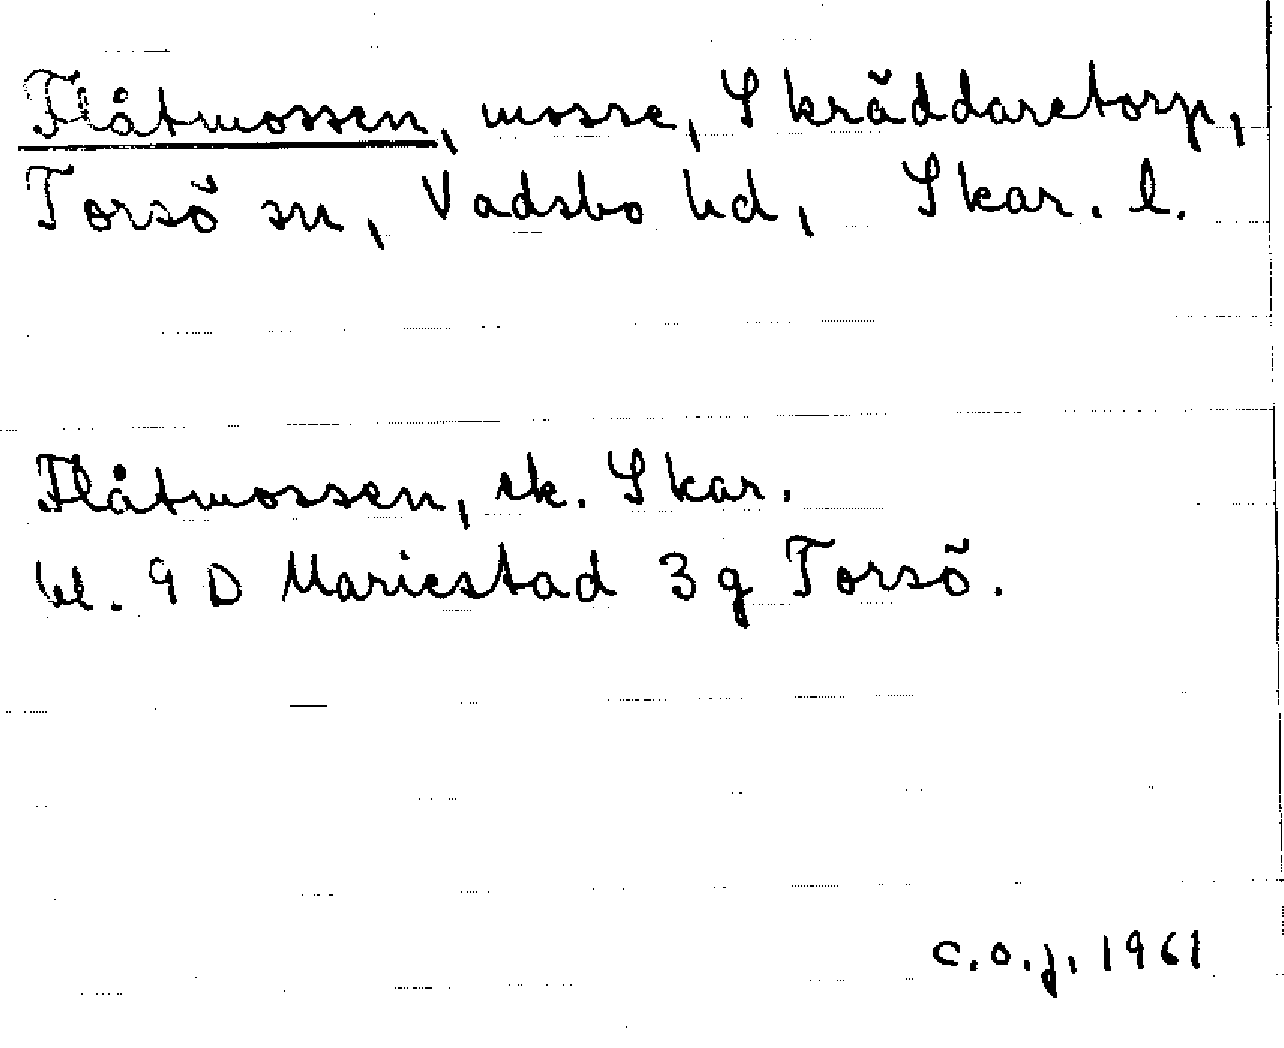 Flåtmossen, mosse, Skräddaretorp,
Torsö sn, Vadsbo hd, Skar. l.
Flåtmossen, ek. Skar.
bl. 9 D Mariestad 3 g Torsö.
c.o.j. 1961